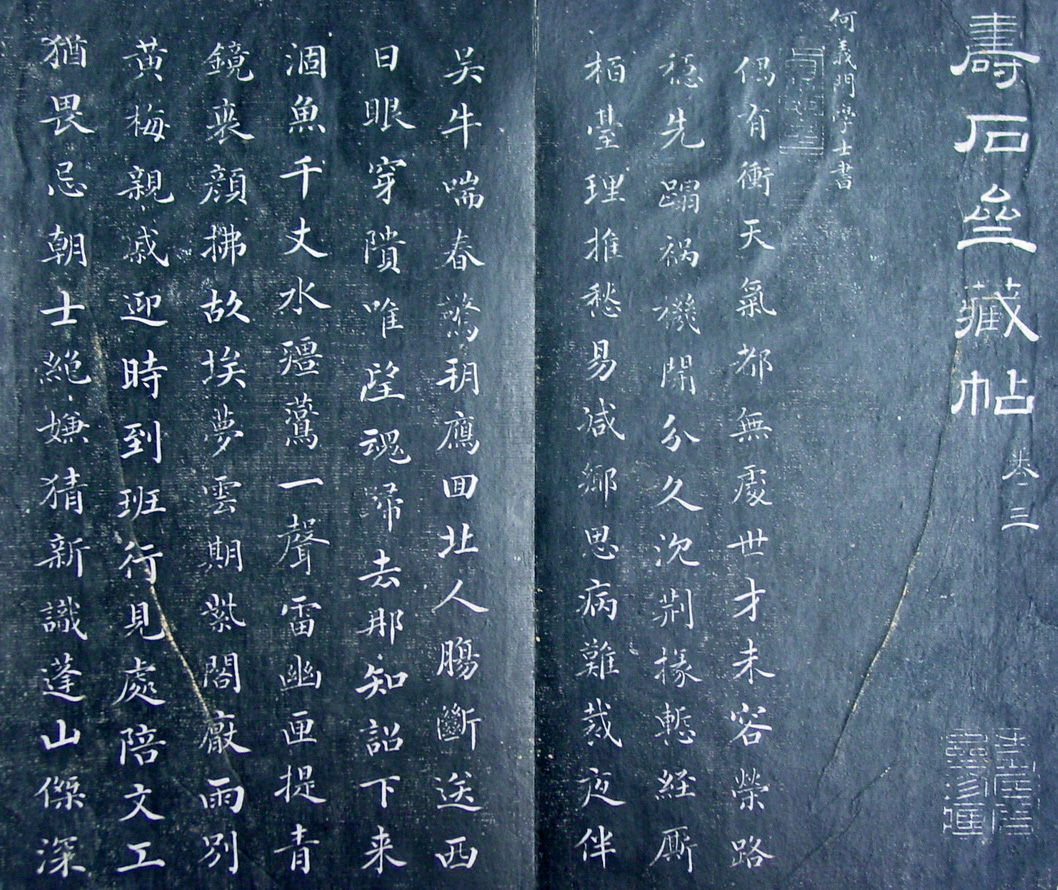 壽石齋藏帖
卷三
何義門學士書
偶有衝天氣都無處世才未容榮路
穩先蹋禍機開分久沉荆掾慙経厮
栢臺理推愁易減鄉思病難裁夜伴
吳牛喘春驚朔鴈回北人腸斷送西
日眼穿隤唯望魂歸去那知詔下来
涸魚千丈水殭鷰一聲雷幽匣提青
鏡衰顔拂故埃夢雲期紫閣厰雨別
黄梅親戚迎時到班行見處陪文工
猶畏忌朝士絶嫌猜新識蓬山傑深